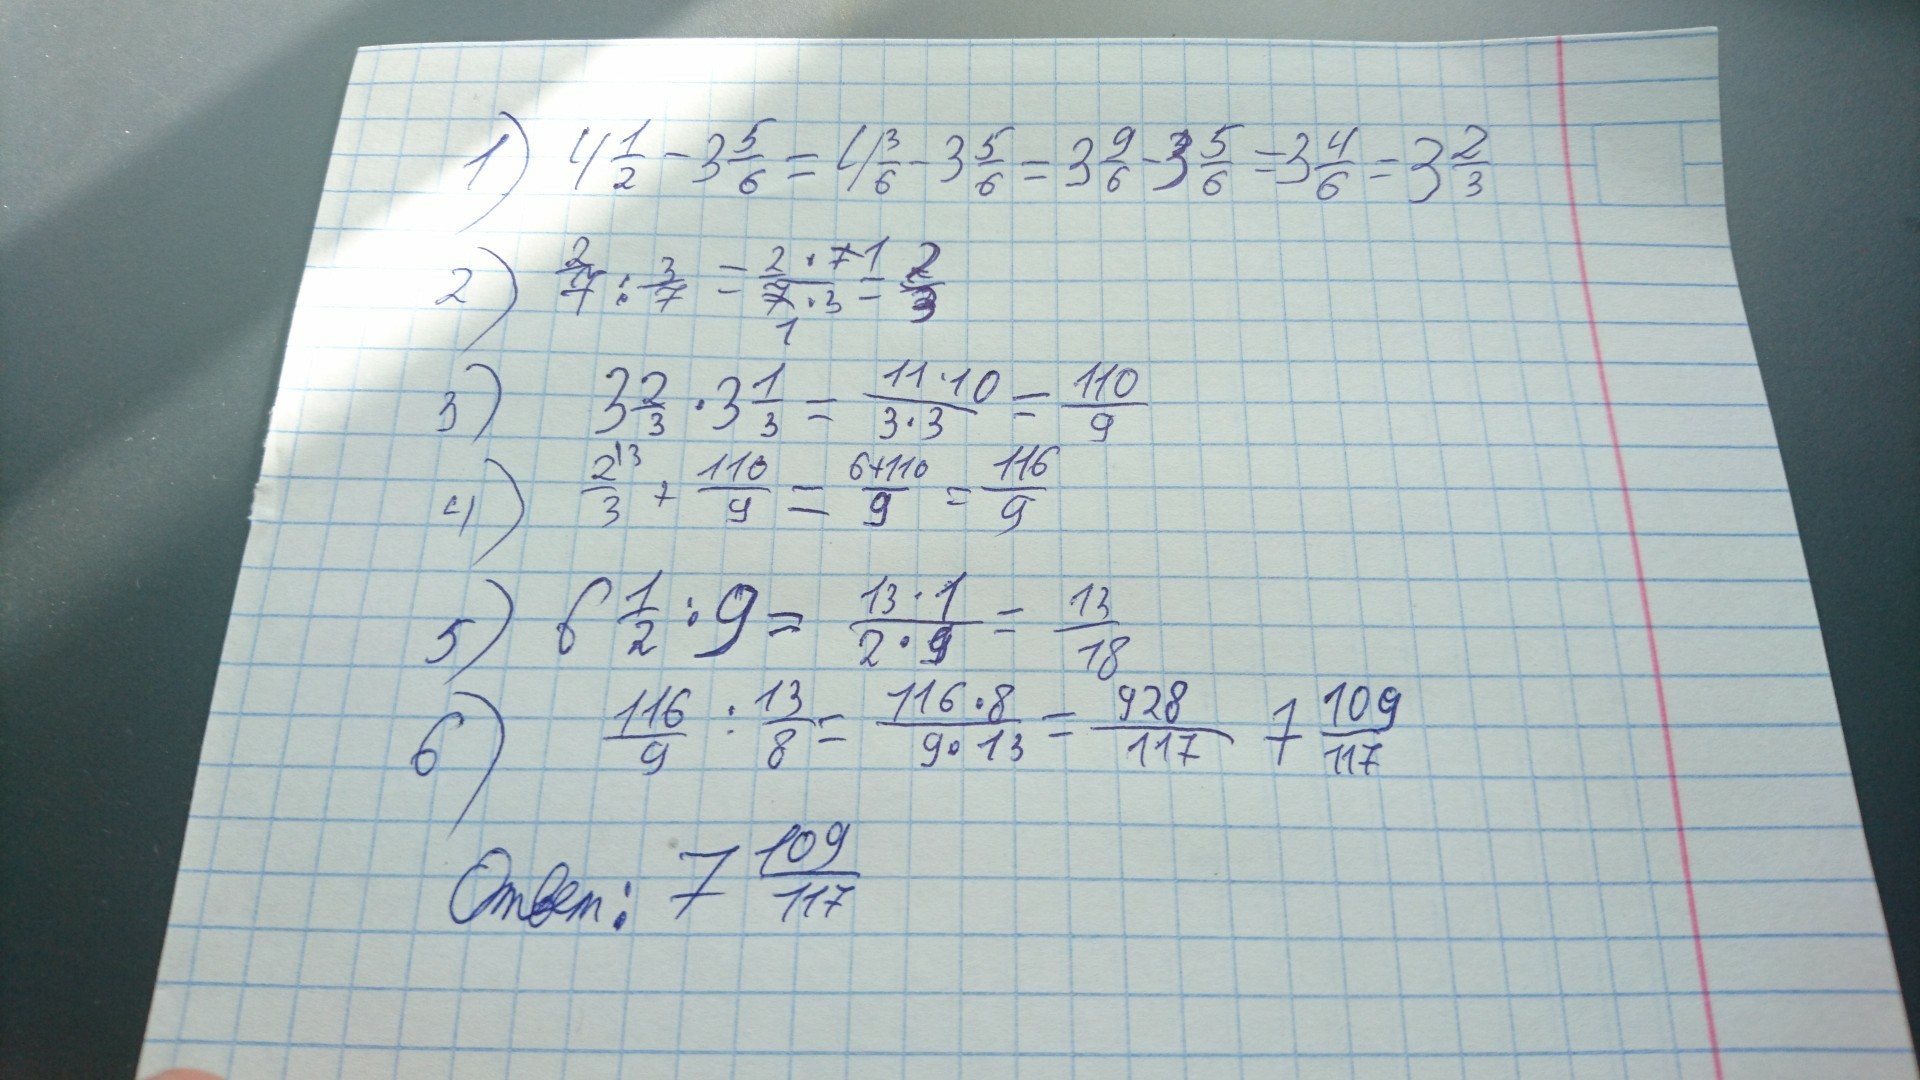 1) 4 1/2 - 3 5/6 = 4 3/6 - 3 5/6 = 3 9/6 - 3 5/6 = 3 4/6 = 3 2/3
2) 2/7 : 3/7 = 2 · 7 1 / 7 · 3 1 = 2/3
3) 3 2/3 · 3 1/3 = 11·10 / 3·3 = 110/9
4) 2 ^13 / 3 + 110/9 = 6+110 / 9 = 116/9
5) 6 1/2 : 9 = 13·1 / 2·9 = 13/18
6) 116/9 : 13/8 = 116·8 / 9·13 = 928/117 7 109/117
Ответ: 7 109/117